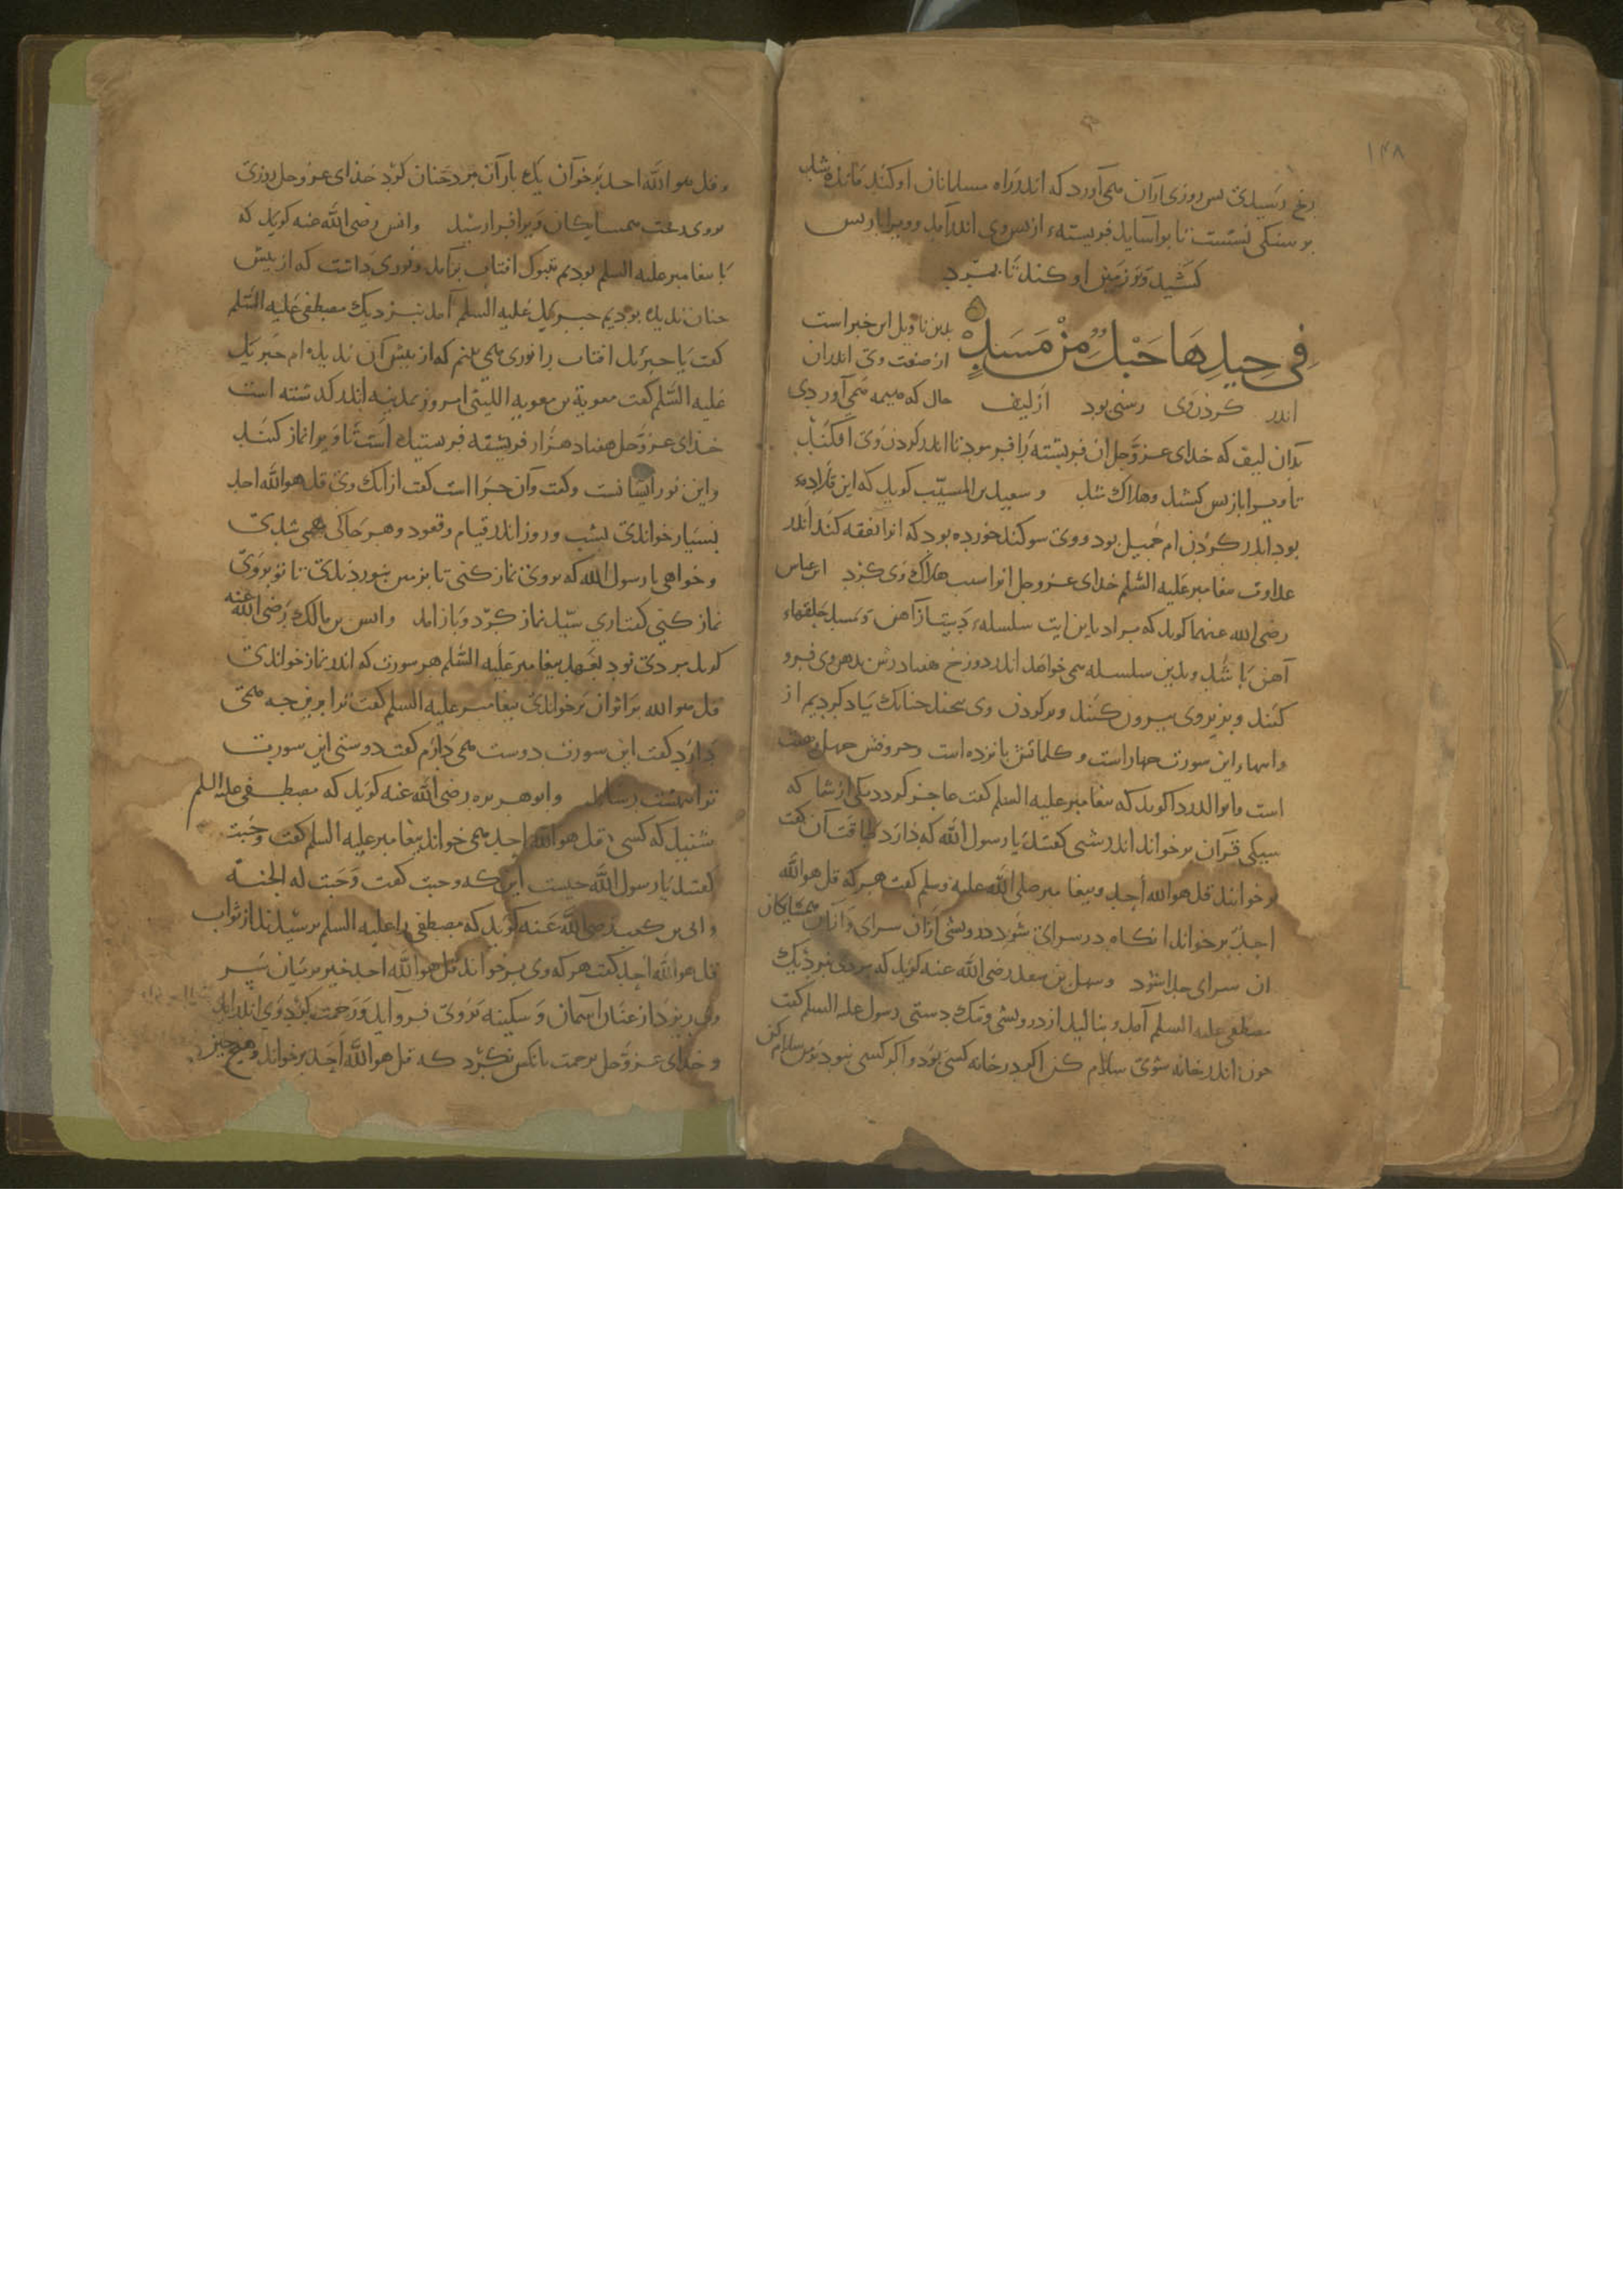 ۱۴۸
رنج رسیدی پس روزی ازان همی آورد که اندر راه مسلمانان او کند مانده شد
بر سنکی نشست تا بر آساید فریسته از بس وی اندر آمد و ویرا باز بس
کشید و بر زمین او کند تا بمرد
فِي جِيدِهَا حَبْلٌ مِنْ مَسَدٍ
بدین تاویل این خبر است
از صفت وی اندران
اندر کردن وی رسنی بود از لیف حال که هیمه همی آوردی
بدان لیف که خدای عز و جل ان فریسته را فرمود تا اندر کردن وی افکند
تا ویرا باز بس کشید و هلاک شد و سعید بن المسیّب کوید که این قلاده
بود اندر کردن ام جمیل بود و وی سوکند خورده بود که انرا نفقه کند اندر
عداوت بیغامبر علیه السّلم خدای عز و جل انرا سبب هلاک وی کرد ابن عباس
رضی الله عنهما کوید که مراد باین ایت سلسله است از آهن و مسد حلقهاء
آهن باشد و بدین سلسله می خواهد اندر دوزخ هفتاد رش بدهن وی فرو
کنند و بزیر وی بیرون کنند و بر کردن وی بیچند چنانک یاد کردیم از
و ایتهاء این سورت چهار است و کلماتش بانزده است و حروفش چهل هفت
است و ابو الدردا کوید که بیغامبر علیه السلم کفت عاجز کردد یکی از شما که
سیکی قرآن بر خواند اندر شبی کفتند یا رسول الله که دارد طاقت آن کفت
بر خوانند قل هو الله أحد و بیغامبر صلی الله علیه و سلم کفت هر که قل هو الله
احد بر خواند انکاه در سرای شود درویشی ازان سرای و ازان همسایکان
ان سرای جدا شود و سهل بن سعد رضی الله عنه کوید که مردی نزدیک
مصطفی علیه السلم آمد و بنالید از درویشی و تنک دستی رسول علیه السلم کفت
چون اندر خانه شوی سلام کن اکر در خانه کسی بود و اکر کسی نبود بر من سلام کن
و قل هو الله احد بر خوان یک بار آن مرد چنان کرد خدای عز و جل روزی
بر وی ریخت همسایکان ویرا فرا رسید و انس رضی الله عنه کوید که
با بیغامبر علیه السلم بودیم بتبوک افتاب برآمد و نوری داشت که از بیش
چنان ندیده بودیم جبریل علیه السلم آمد بنزدیک مصطفی علیه السّلم
کفت یا جبرئل افتاب را نوری همی بینم که از بیش آن ندیده ام جبریل
علیه السّلم کفت معویة بن معویه اللیثی امروز بمدینه اندر کذشته است
خدای عزّ و جل هفتاد هزار فریشته فرستیده است تا ویرا نماز کنند
و این نور ایشانست و کفت و آن چرا است کفت از انک وی قل هو الله احد
بسیار خواندی بشب و روز اندر قیام و قعود و هر جاکی همی شدی
و خواهی یا رسول الله که بر وی نماز کنی تا زمین بنوردند تا تو بر وی
نماز کنی کفت اری سیّد نماز کرد و باز امد و انس بن مالک رضی الله عنه
کوید مردی بود بعهد بیغامبر علیه السّلم هر سورت که اندر نماز خواندی
قل هو الله بر اثر آن بر خواندی بیغامبر علیه السلم کفت ترا برین چه همی
دارد کفت این سورت دوست همی دارم کفت دوستی این سورت
ترا ببهشت رساند و ابو هریره رضی الله عنه کوید که مصطفی علیه السلم
شنید که کسی قل هو الله احد همی خواند بیغامبر علیه السلم کفت وجبت
کفتند یا رسول الله چیست این که وجبت کفت وجبت له الجنة
و ابی بن کعب رضی الله عنه کوید که مصطفی را علیه السلم برسیدند از ثواب
قل هو الله احد کفت هر که وی بر خواند قل هو الله احد خیر بریان سر
وی ریزد از عنان اسمان و سکینه بر وی فرو آید و رحمت کرد وی اندر اید
و خدای عزّ و جل برحمت بانکس نکرد که قل هو الله احد بر خواند و هیچ چیز